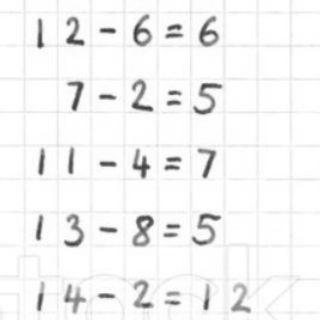 12-6=6
7-2=5
11-4=7
13-8=5
14-2=12